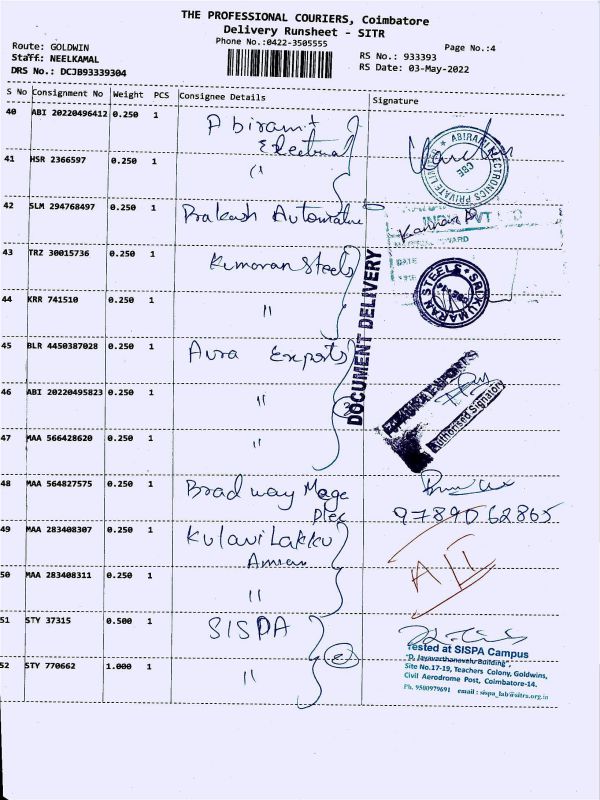 THE PROFESSIONAL COURIERS, Coimbatore
Delivery Runsheet - SITR
Phone No.:0422-3505555
Page No.:4
Route: GOLDWIN
Staff: NEELKAMAL
DRS No.: DCJB93339304
RS No.: 933393
RS Date: 03-May-2022
S No Consignment No Weight PCS Consignee Details Signature
40 ABI 20220496412 0.250 1 Abirami
Electronal
ABIRAMI ELECTRONICS PRIVATE LIMITED
CBE
41 HSR 2366597 0.250 1 "
42 SLM 294768497 0.250 1 Prakash Automative
PVT LTD
Kannan P
WARD
DATE
43 TRZ 30015736 0.250 1 Kumaran Steels
SRI KUMARAN STEELS
DOCUMENT DELIVERY
44 KRR 741510 0.250 1 "
45 BLR 4450387028 0.250 1 Aura Exports
46 ABI 20220495823 0.250 1 " 3
Authorised Signatory
47 MAA 566428620 0.250 1 "
48 MAA 564827575 0.250 1 Brad way Mage
Plex
9789062865
49 MAA 283408307 0.250 1 Kulavi Lakku
Amman
50 MAA 283408311 0.250 1 "
51 STY 37315 0.500 1 SISPA
2
Tested at SISPA Campus
"D. Jayavarthanavelu Building",
Site No.17-19, Teachers Colony, Goldwins,
Civil Aerodrome Post, Coimbatore-14.
Ph. 9500979691 email : sispa_lab@sitra.org.in
52 STY 770662 1.000 1 "